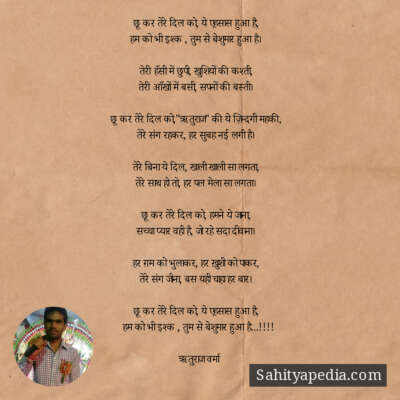 छू कर तेरे दिल को, ये एहसास हुआ है,
हम को भी इश्क , तुम से बेशुमार हुआ है।
तेरी हँसी में छुपी, खुशियों की कश्ती,
तेरी आँखों में बसी, सपनों की बस्ती।
छू कर तेरे दिल को,"ऋतुराज" की ये ज़िन्दगी महकी,
तेरे संग रहकर, हर सुबह नई लगी है।
तेरे बिना ये दिल, खाली खाली सा लगता,
तेरे साथ हो तो, हर पल मेला सा लगता।
छू कर तेरे दिल को, हमने ये जाना,
सच्चा प्यार वही है, जो रहे सदा दीवाना।
हर ग़म को भुलाकर, हर ख़ुशी को पाकर,
तेरे संग जीना, बस यही चाहा हर बार।
छू कर तेरे दिल को, ये एहसास हुआ है,
हम को भी इश्क , तुम से बेशुमार हुआ है...!!!!
ऋतुराज वर्मा
Sahityapedia.com